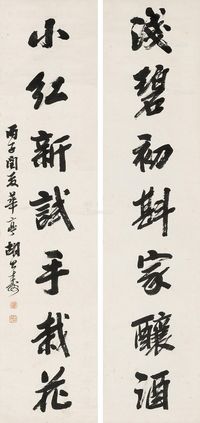 淺碧初斟家釀酒
小紅新試手栽花
丙子閏夏華亭胡公壽